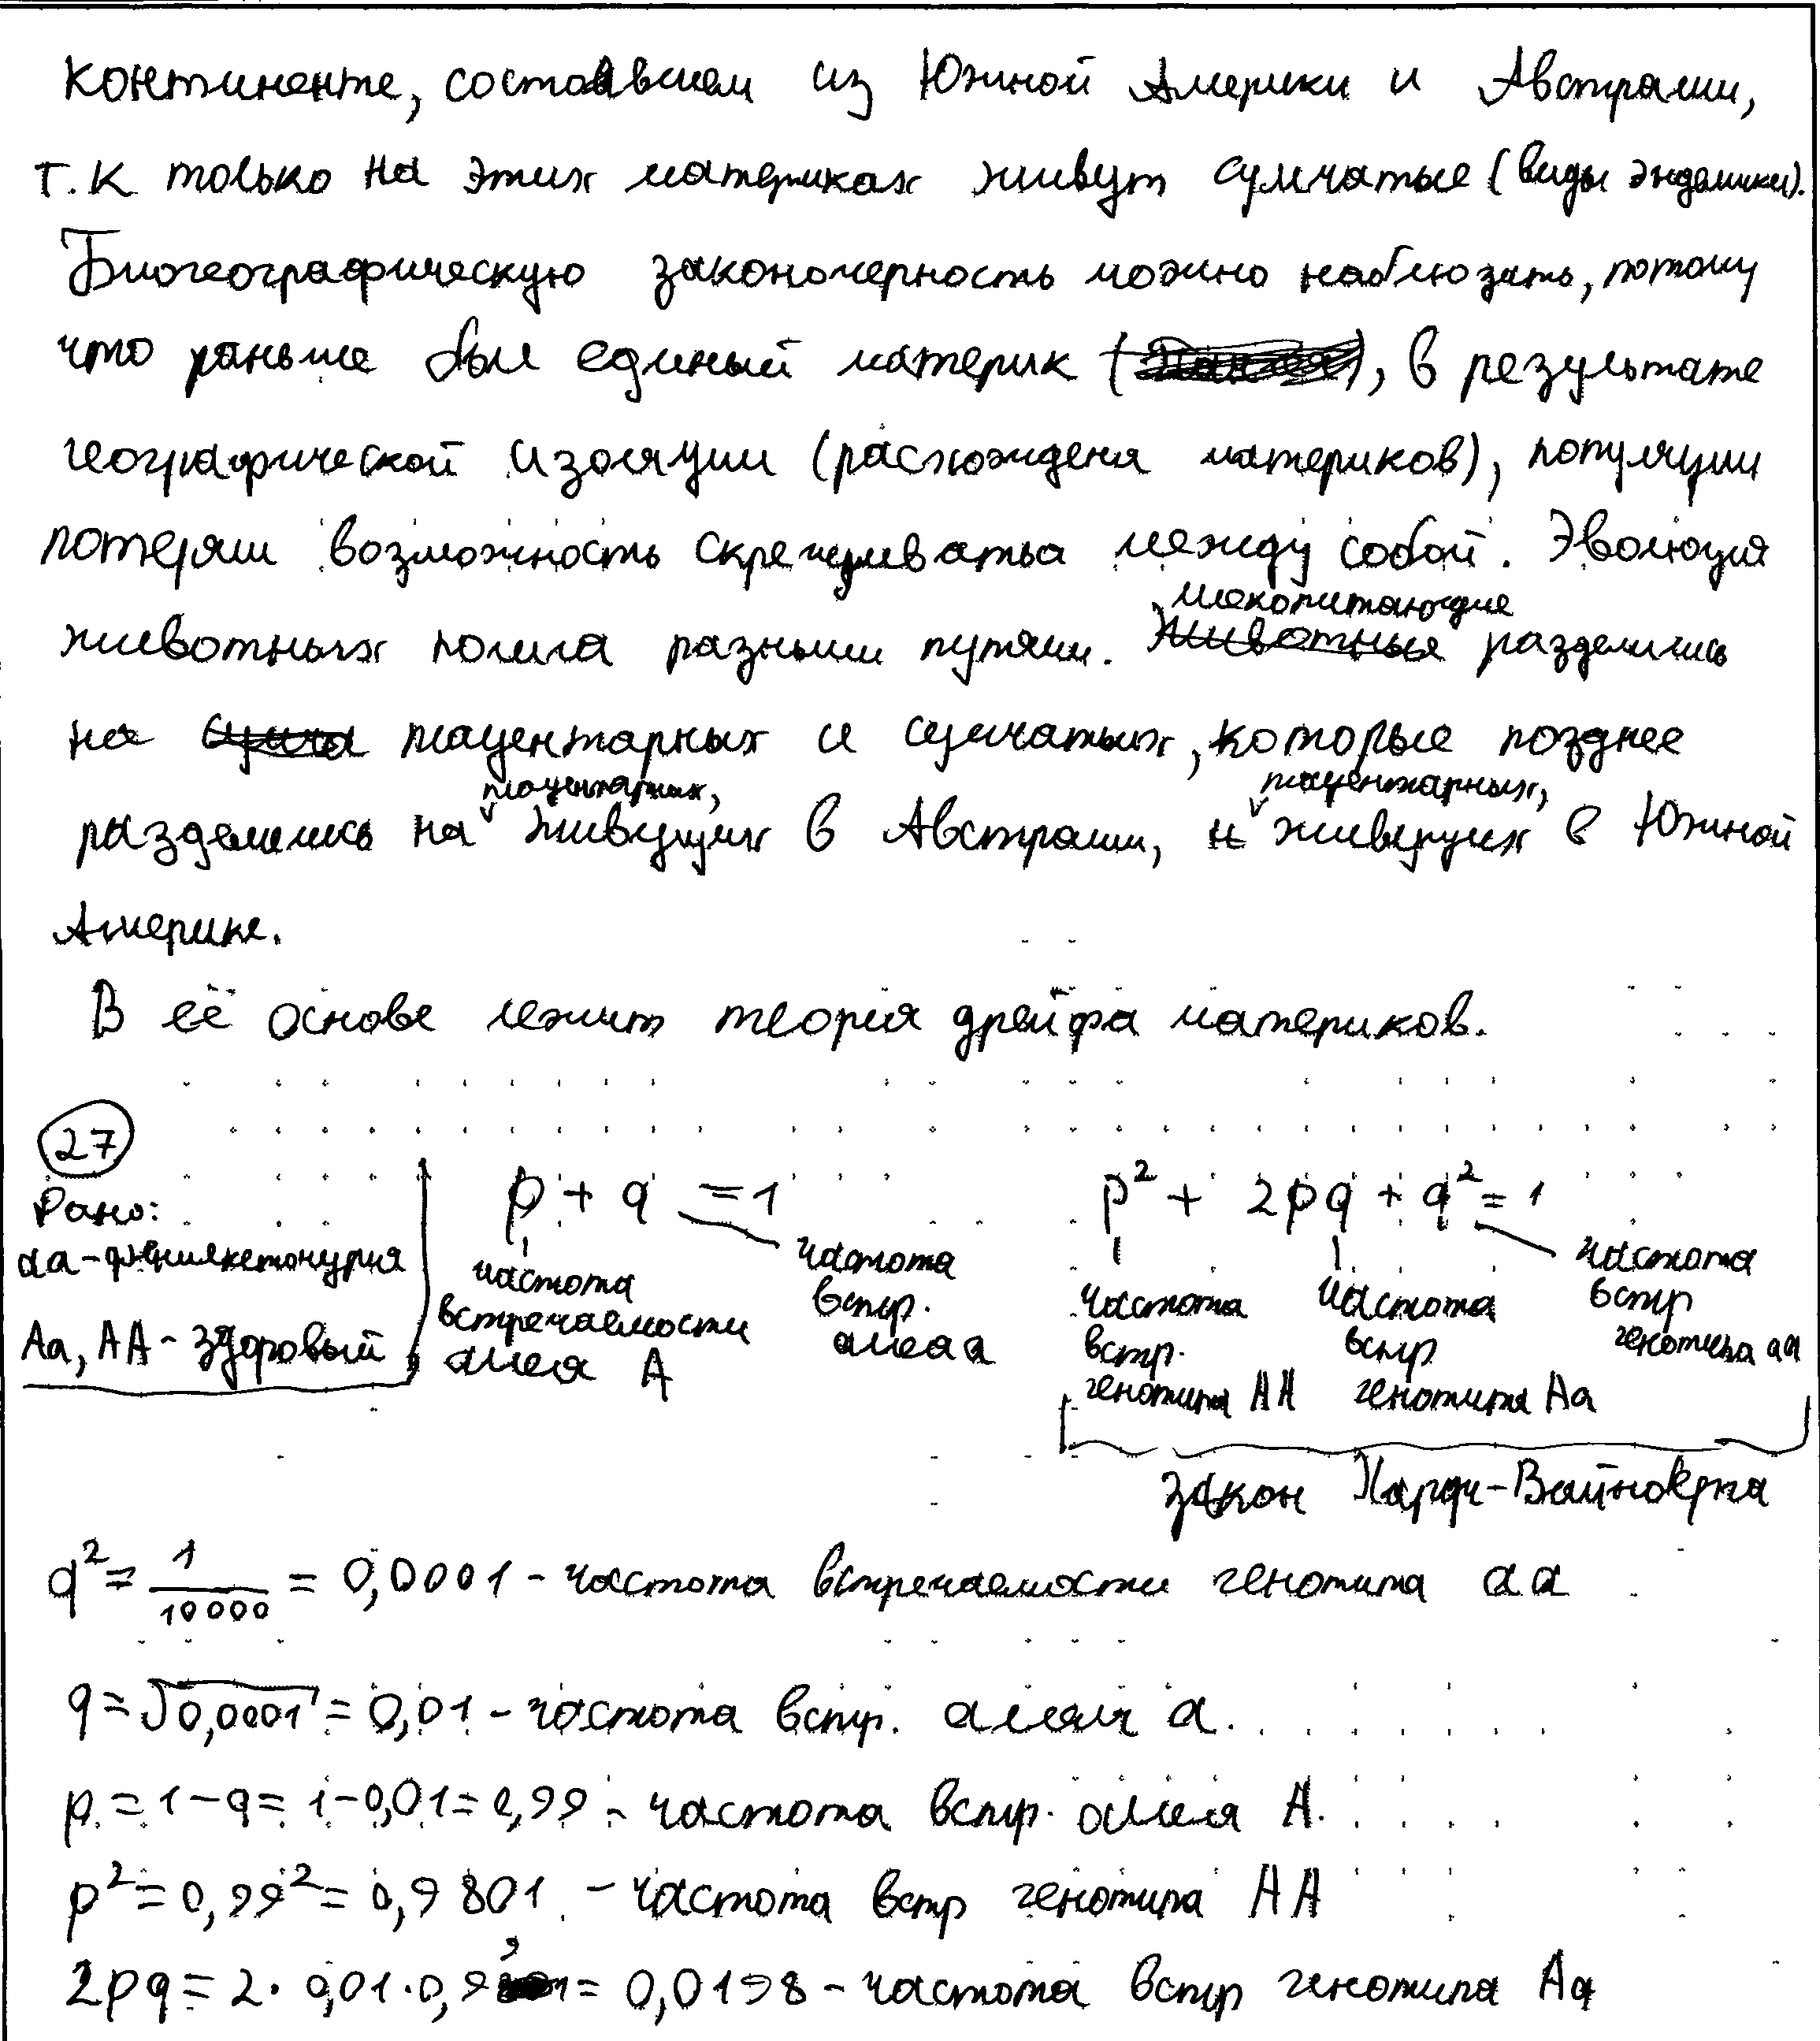 континенте, состоявшем из Южной Америки и Австралии,
т.к только на этих материках живут сумчатые (виды эндемики).
Биогеографическую закономерность можно наблюдать, потому
что раньше был единый материк ( ), в результате
географической изоляции (расхождения материков), популяции
потеряли возможность скрещиваться между собой. Эволюция
животных пошла разными путями. Животные млекопитающие разделились
на сумча плацентарных и сумчатых, которые позднее
разделились на плацентарных, живущих в Австралии, и плацентарных, живущих в Южной
Америке.
В её основе лежит теория дрейфа материков.
27
Дано:
аа - фенилкетонурия
Аа, АА - здоровый
p + q = 1
частота встречаемости аллеля А
частота встр. аллеля а
p² + 2pq + q² = 1
частота встр. генотипа АА
частота встр генотипа Аа
частота встр генотипа аа
закон Харди-Вайнберга
q² = 1/10000 = 0,0001 - частота встречаемости генотипа аа
q = √0,0001 = 0,01 - частота встр. аллеля а.
p = 1 - q = 1 - 0,01 = 0,99 - частота встр. аллеля А.
p² = 0,99² = 0,9801 - частота встр генотипа АА
2pq = 2 · 0,01 · 0,99 = 0,0198 - частота встр генотипа Аа